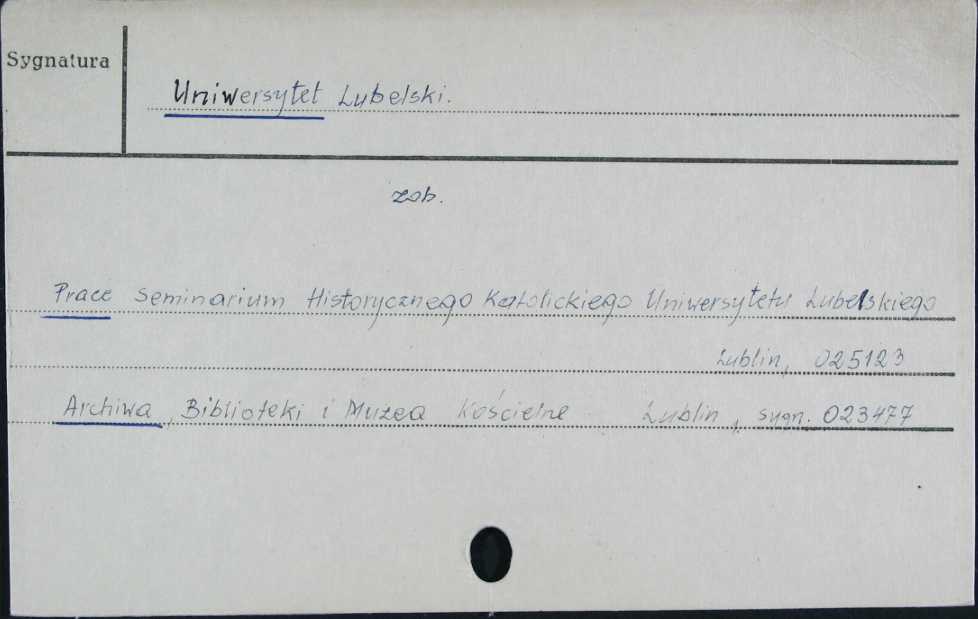 Sygnatura
Uniwersytet Lubelski.
zob.
Prace Seminarium Historycznego Katolickiego Uniwersytetu Lubelskiego
Lublin, 025123
Archiwa, Biblioteki i Muzea Kościelne Lublin, sygn. 023477